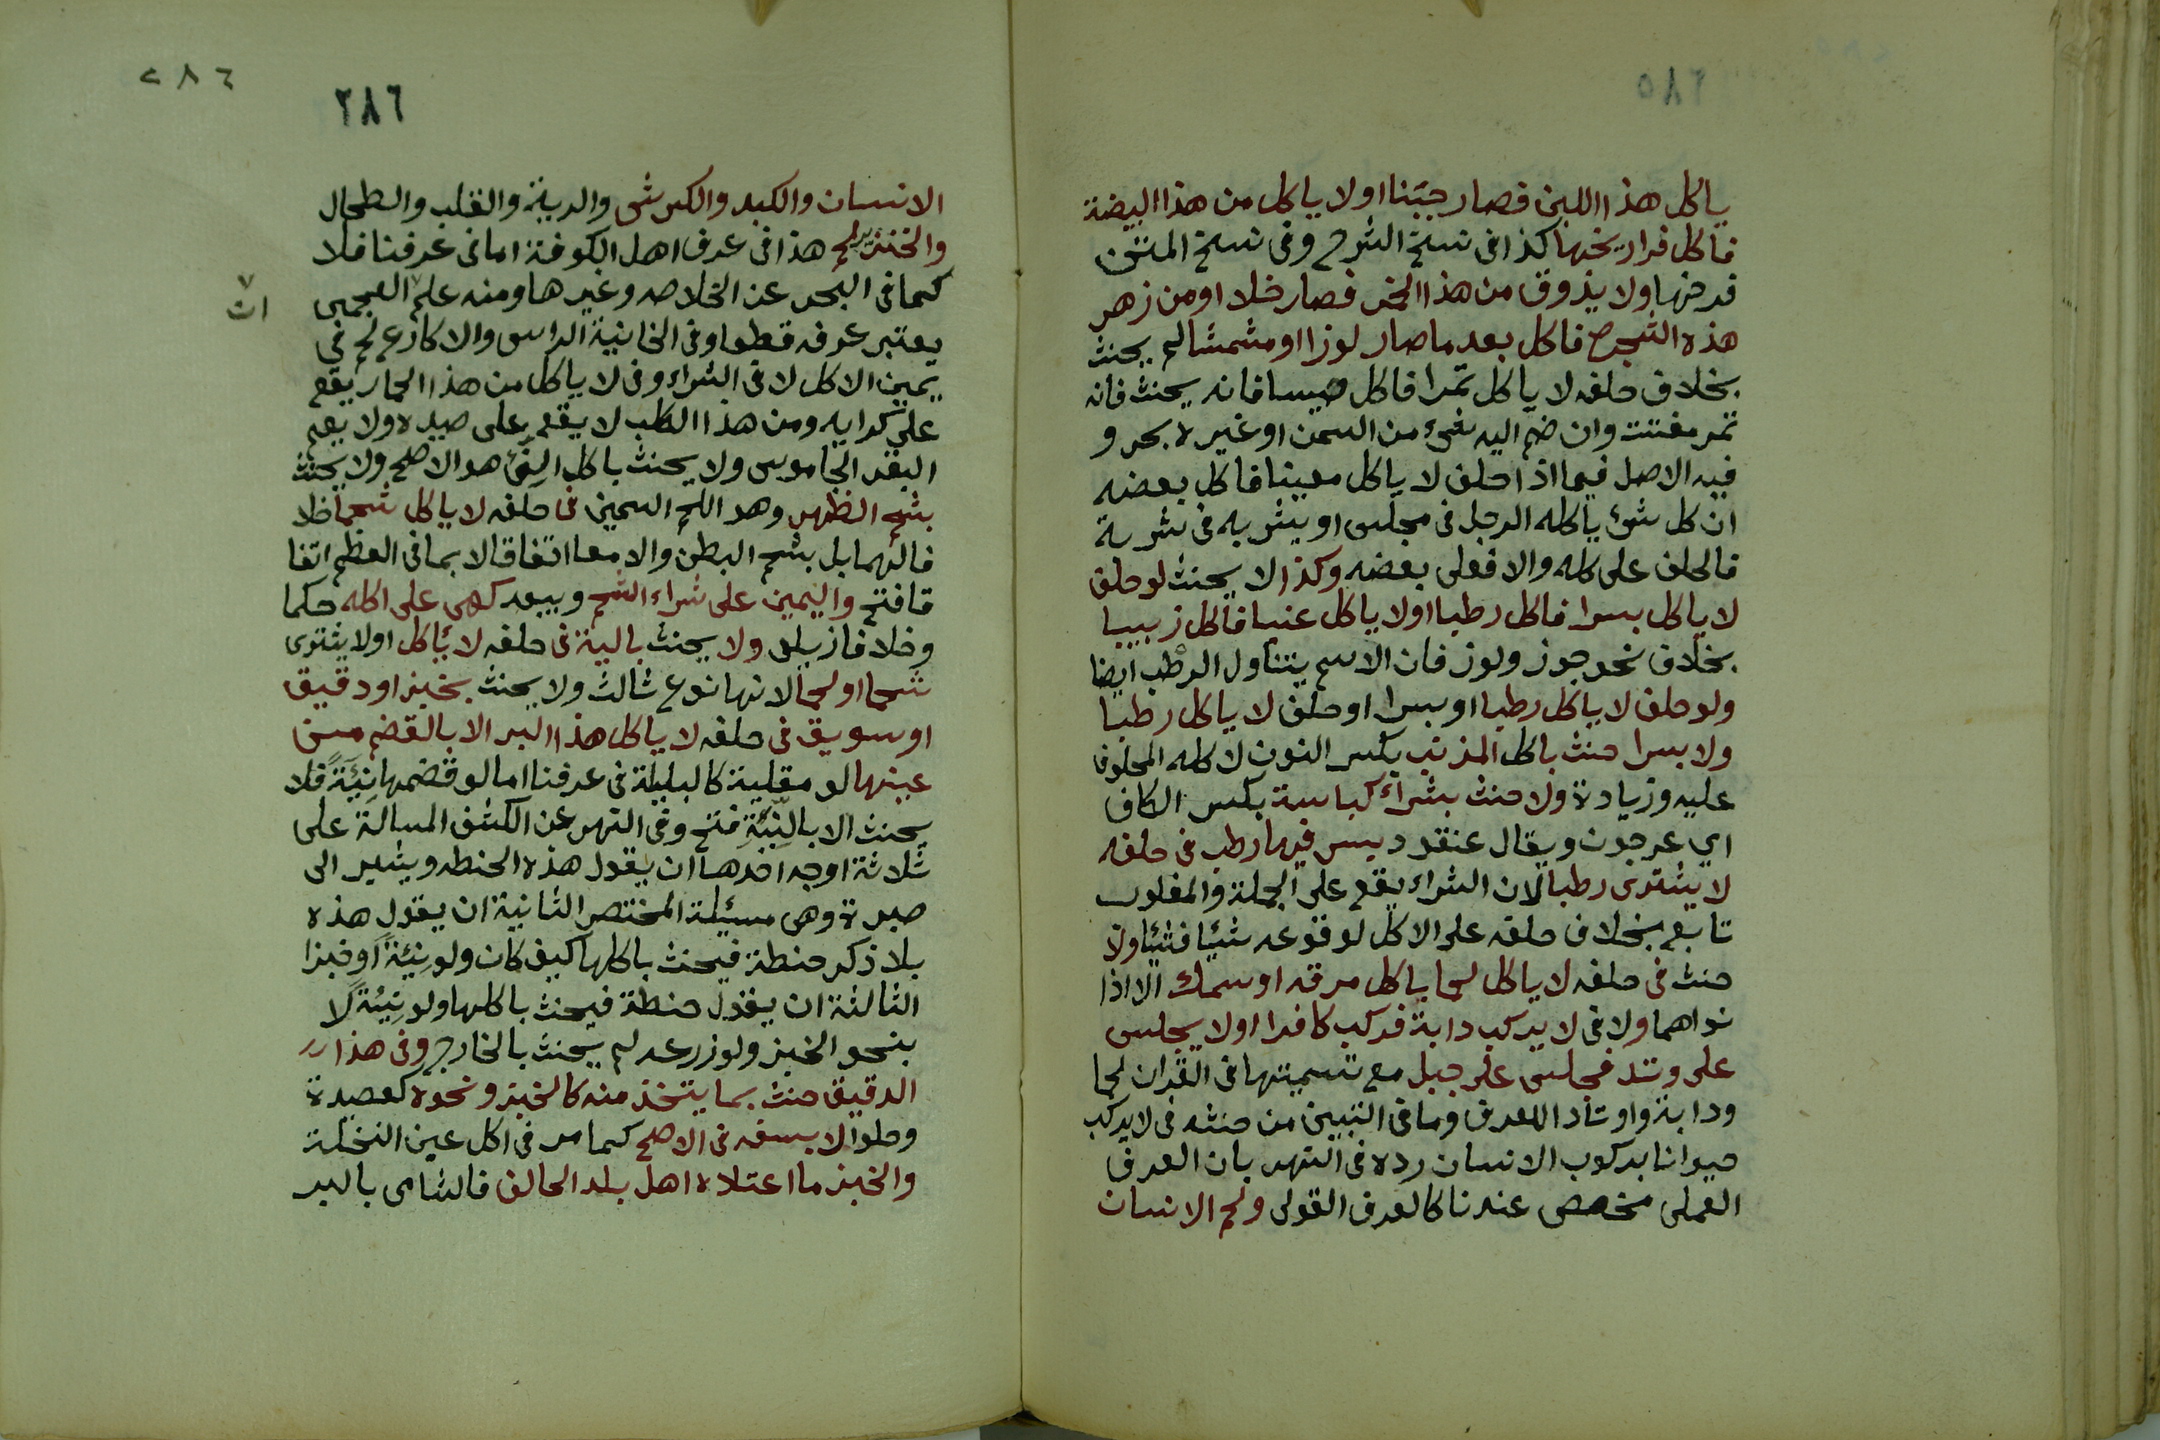 ياكل هذا اللبن فصار جبنا اولا ياكل من هذا البيضة
فاكل فراريخها كذا فى نسخ الشرح وفى نسخ المتن
فرخها ولا يذوق من هذا الخمر فصار خلا او من زهر
هذه الشجرة فاكل بعد ما صار لوزا او مشمشا لم يحنث
بخلاف حلفه لا ياكل تمرا فاكل حيسا فانه يحنث فانه
تمر مفتت وان ضم اليه شئ من السمن او غيره بحر و
فيه الاصل فيما اذا حلف لا ياكل معينا فاكل بعضه
ان كل شئ ياكله الرجل فى مجلس او يشربه فى شربة
فالحلف على كله والا فعلى بعضه وكذا لا يحنث لو حلف
لا ياكل بسرا فاكل رطبا اولا ياكل عنبا فاكل زبيبا
بخلاف نحو جوز ولوز فان الاسم يتناول الرطب ايضا
ولو حلف لا ياكل رطبا او بسرا او حلف لا ياكل رطبا
ولا بسرا حنث باكل المذنب بكسر النون لاكله المحلوف
عليه وزيادة ولا حنث بشراء كباسة بكسر الكاف
اي عرجون ويقال عنقود بسر فيها رطب فى حلفه
لا يشترى رطبا لان الشراء يقع على الجملة والمغلوب
تابع بخلاف حلفه على الاكل لوقوعه شيئا فشيئا ولا
حنث فى حلفه لا ياكل لحما باكل مرقه او سمك الا اذا
نواهما ولا فى لا يركب دابة فركب كافرا اولا يجلس
على وتد فجلس على جبل مع تسميتها فى القران لحما
ودابة واوتاد اللعرف وما فى التبيين من حنثه فى لا يركب
حيوانا بركوب الانسان رده فى النهر بان العرف
العملى مخصص عندنا كالعرف القولى ولحم الانسان
٢٨٥

٢٨٦
٢٨٦
الانسان والكبد والكرش والرية والقلب والطحال
والخنزير لحم هذا فى عرف اهل الكوفة اما فى عرفنا فلا
كما فى البحر عن الخلاصه وغيرها ومنه علم العجمى
ان
يعتبر عرفه قطعا وفى الخانية الراس والاكارع لحم فى
يمين الاكل لا فى الشراء وفى لا ياكل من هذا الحمار يقع
على كرايه ومن هذا الكلب لا يقع على صيده ولا يعم
البقر الجاموس ولا يحنث باكل النئ هو الاصح ولا يحنث
بشحم الظهر وهو اللحم السمين فى حلفه لا ياكل شحما خلا
فا لهما بل بشحم البطن والامعا اتفاقا لا بما فى العظم اتفا
قا فتح واليمين على شراء الشحم وبيعه كهى على اكله حكما
وخلافا زيلعى ولا يحنث بالية فى حلفه لا ياكل اولا يشترى
شحما او لحما لانها نوع ثالث ولا يحنث بخبز او دقيق
او سويق فى حلفه لا ياكل هذا البر الا بالقضم من
عينها لو مقلية كالبليلة فى عرفنا اما لو قضمها نيئة فلا
يحنث الا بالنية فتح وفى النهر عن الكشف المسالة على
ثلاثة اوجه احدها ان يقول هذه الحنطه ويشير الى
صبرة وهى مسئلة المختصر الثانية ان يقول هذه
بلا ذكر حنطة فيحنث باكلها كيف كان ولو نيئة او خبزا
الثالثة ان يقول حنطة فيحنث باكلها ولو نيئة لا
بنحو الخبز ولو زرعه لم يحنث بالخارج وفى هذا
الدقيق حنث بما يتخذ منه كالخبز ونحوه كعصيدة
وحلوا لا بسفه فى الاصح كما مر فى اكل عين النخلة
والخبز ما اعتاده اهل بلد الحالف فالشامى بالبر